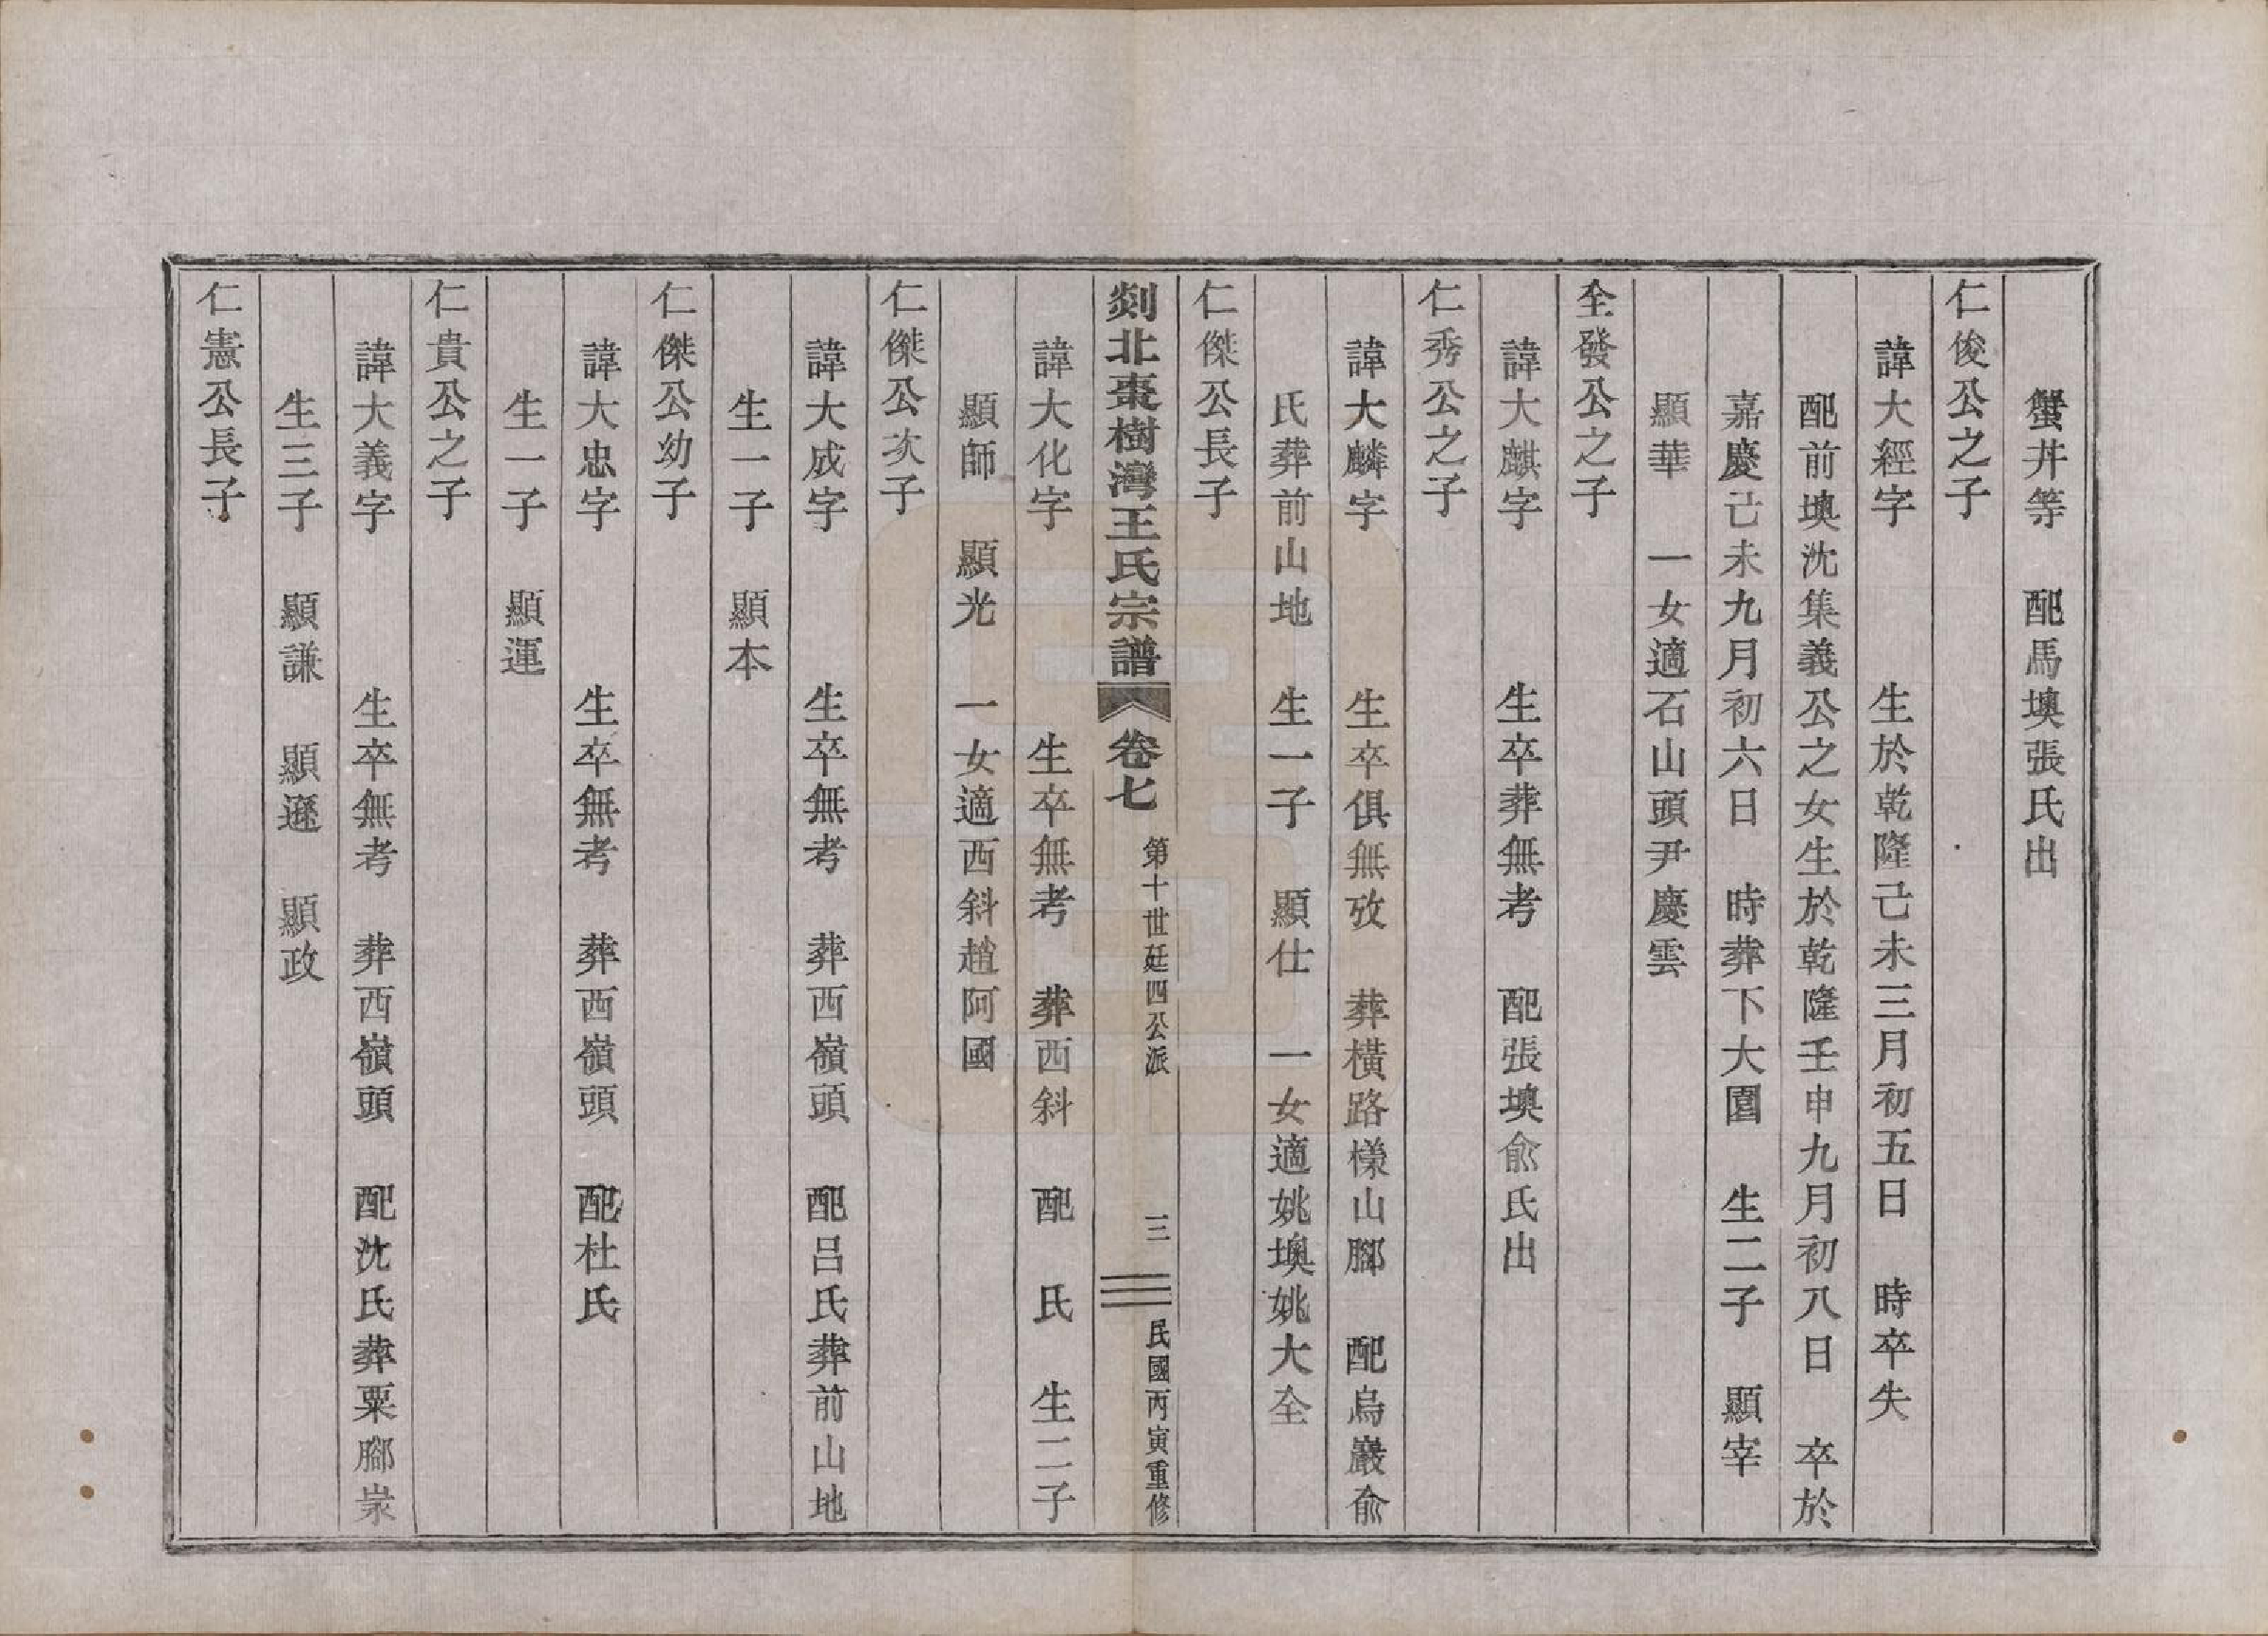 蟹井等　配馬墺張氏出
仁俊公之子
諱大經字　　　生於乾隆己未三月初五日　時卒失
配前墺沈集義公之女生於乾隆壬申九月初八日　卒於
嘉慶己未九月初六日　時葬下大園　生二子　顯宰
顯華　一女適石山頭尹慶雲
全發公之子
諱大麒字　　　生卒葬無考　配張墺俞氏出
仁秀公之子
諱大麟字　　　生卒俱無攷　葬橫路樣山腳　配烏巖俞
氏葬前山地　生一子　顯仕　一女適姚墺姚大全
仁傑公長子
剡北棗樹灣王氏宗譜　卷七　第十世廷四公派　三　民國丙寅重修
諱大化字　　　　生卒無考　葬西斜　配　氏　生二子
顯師　顯光　一女適西斜趙阿國
仁傑公次子
諱大成字　　　生卒無考　葬西嶺頭　配呂氏葬前山地
生一子　顯本
仁傑公幼子
諱大忠字　　　生卒無考　葬西嶺頭　配杜氏
生一子　顯運
仁貴公之子
諱大義字　　　生卒無考　葬西嶺頭　配沈氏葬粟腳
生三子　顯謙　顯遜　顯政
仁憲公長子